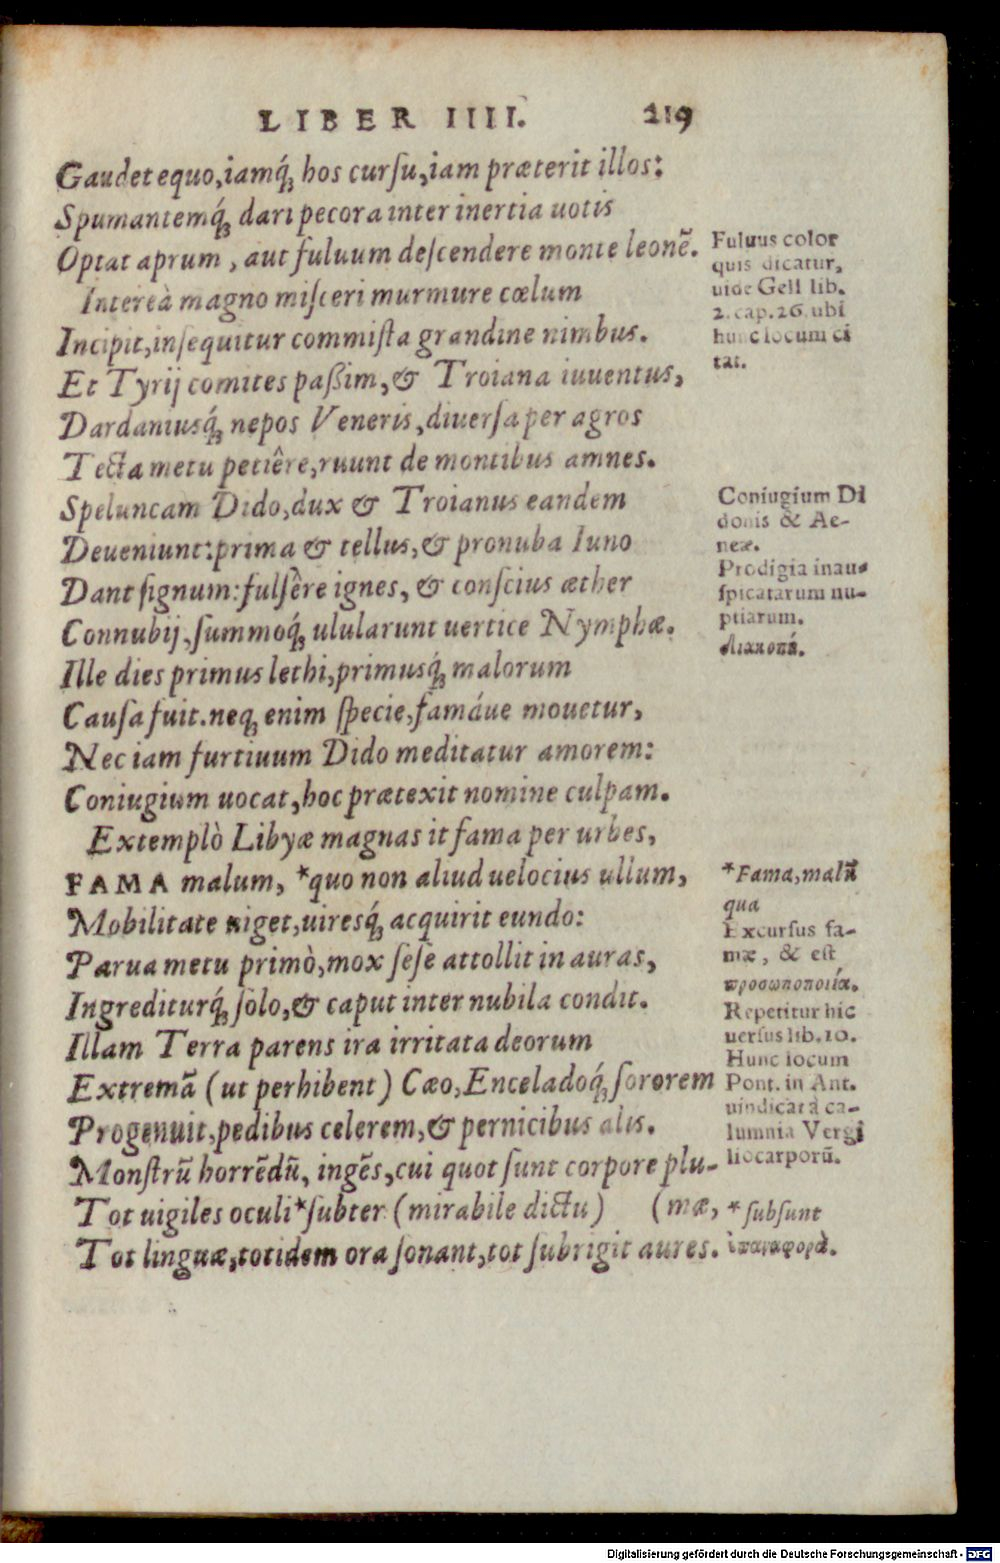 LIBER IIII. 219
Gaudet equo, iamq́; hos curſu, iam præterit illos:
Spumantemq́; dari pecora inter inertia uotis
Optat aprum, aut fuluum deſcendere monte leonẽ.
Intereà magno miſceri murmure cœlum
Incipit, inſequitur commiſta grandine nimbus.
Et Tyrij comites paßim, & Troiana iuuentus,
Dardaniusq́; nepos Veneris, diuerſa per agros
Tecta metu petiêre, ruunt de montibus amnes.
Speluncam Dido, dux & Troianus eandem
Deueniunt: prima & tellus, & pronuba Iuno
Dant ſignum: fulſêre ignes, & conſcius æther
Connubij, ſummoq́; ulularunt uertice Nymphæ.
Ille dies primus lethi, primusq́; malorum
Cauſa fuit. neq; enim ſpecie, famáue mouetur,
Nec iam furtiuum Dido meditatur amorem:
Coniugium uocat, hoc prætexit nomine culpam.
Extemplò Libyæ magnas it fama per urbes,
FAMA malum, *quo non aliud uelocius ullum,
Mobilitate uiget, uiresq́; acquirit eundo:
Parua metu primò, mox ſeſe attollit in auras,
Ingrediturq́; ſolo, & caput inter nubila condit.
Illam Terra parens ira irritata deorum
Extremã (ut perhibent) Cæo, Enceladoq́; ſororem
Progenuit, pedibus celerem, & pernicibus alis.
Monſtrũ horrẽdũ, ingẽs, cui quot ſunt corpore plu-
Tot uigiles oculi *ſubter (mirabile dictu) (mæ,
Tot linguæ, totidem ora ſonant, tot ſubrigit aures.
Fuluus color
quis dicatur,
uide Gell lib.
2. cap. 26. ubi
hunc locum ci
tat.
Coniugium Di
donis & Ae-
neæ.
Prodigia inau-
ſpicatarum nu-
ptiarum.
Διακοπή.
*Fama, malũ
qua
Excurſus fa-
mæ, & eſt
προσωποποιία.
Repetitur hic
uerſus lib. 10.
Hunc locum
Pont. in Ant.
uindicat à ca-
lumnia Vergi
liocarporũ.
*ſubſunt
ἐπαναφορὰ.
Digitalisierung gefördert durch die Deutsche Forschungsgemeinschaft - DFG